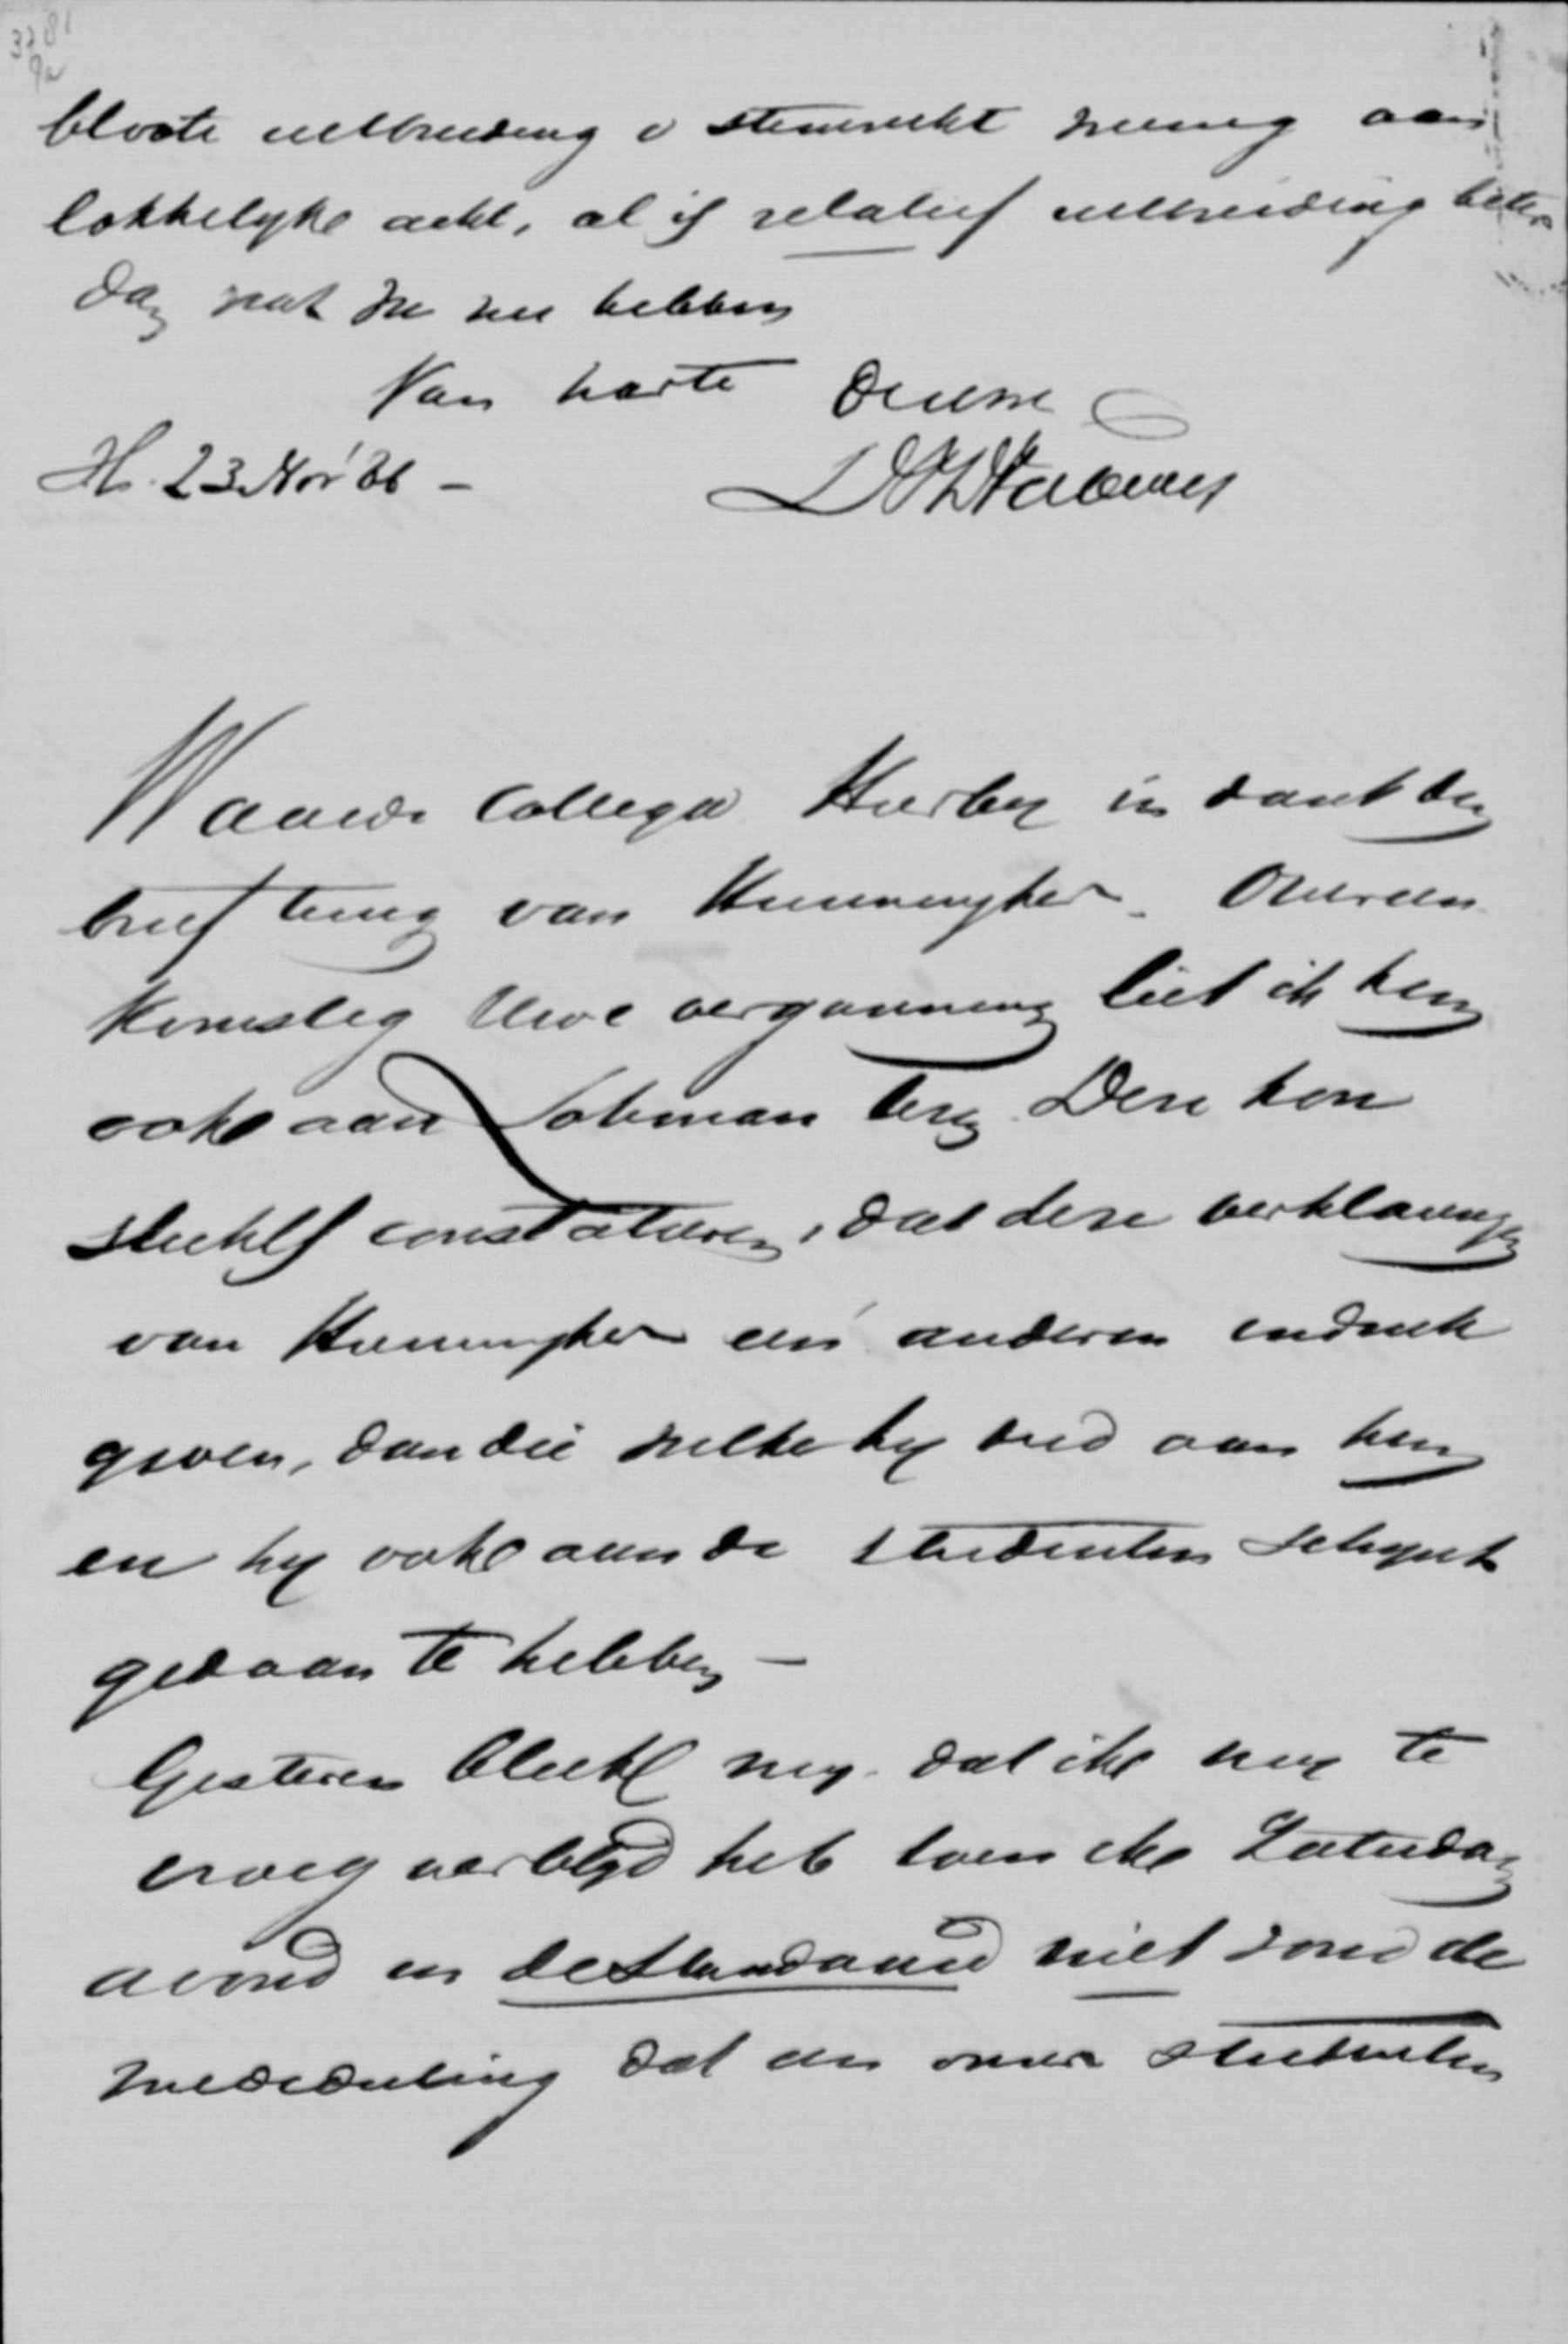 bloote uitbreiding v stemrecht weinig aan
lokkelyke acht, al is relatief uitbreiding beter
dan wat we nu hebben
Van harte Uwe
H. 23 Nov '86 -
Waarde Collega. Hierbij in dank den
brief terug van Hunningher. Overeen
komstig Uwe vergunning liet ik hem
ook aan Lohman lezen. Deze kon
slechts constateren, dat deze verklaringen
van Hunningher een anderen indruk
geven, dan die welke hy deed aan hem
en hy ook aan de studenten schynt
gedaan te hebben -
Gisteren bleek my dat ik my te
vroeg verblyd heb toen ik Zaterdag
avond in de Standaard niet vond de
mededeeling dat en onze studenten